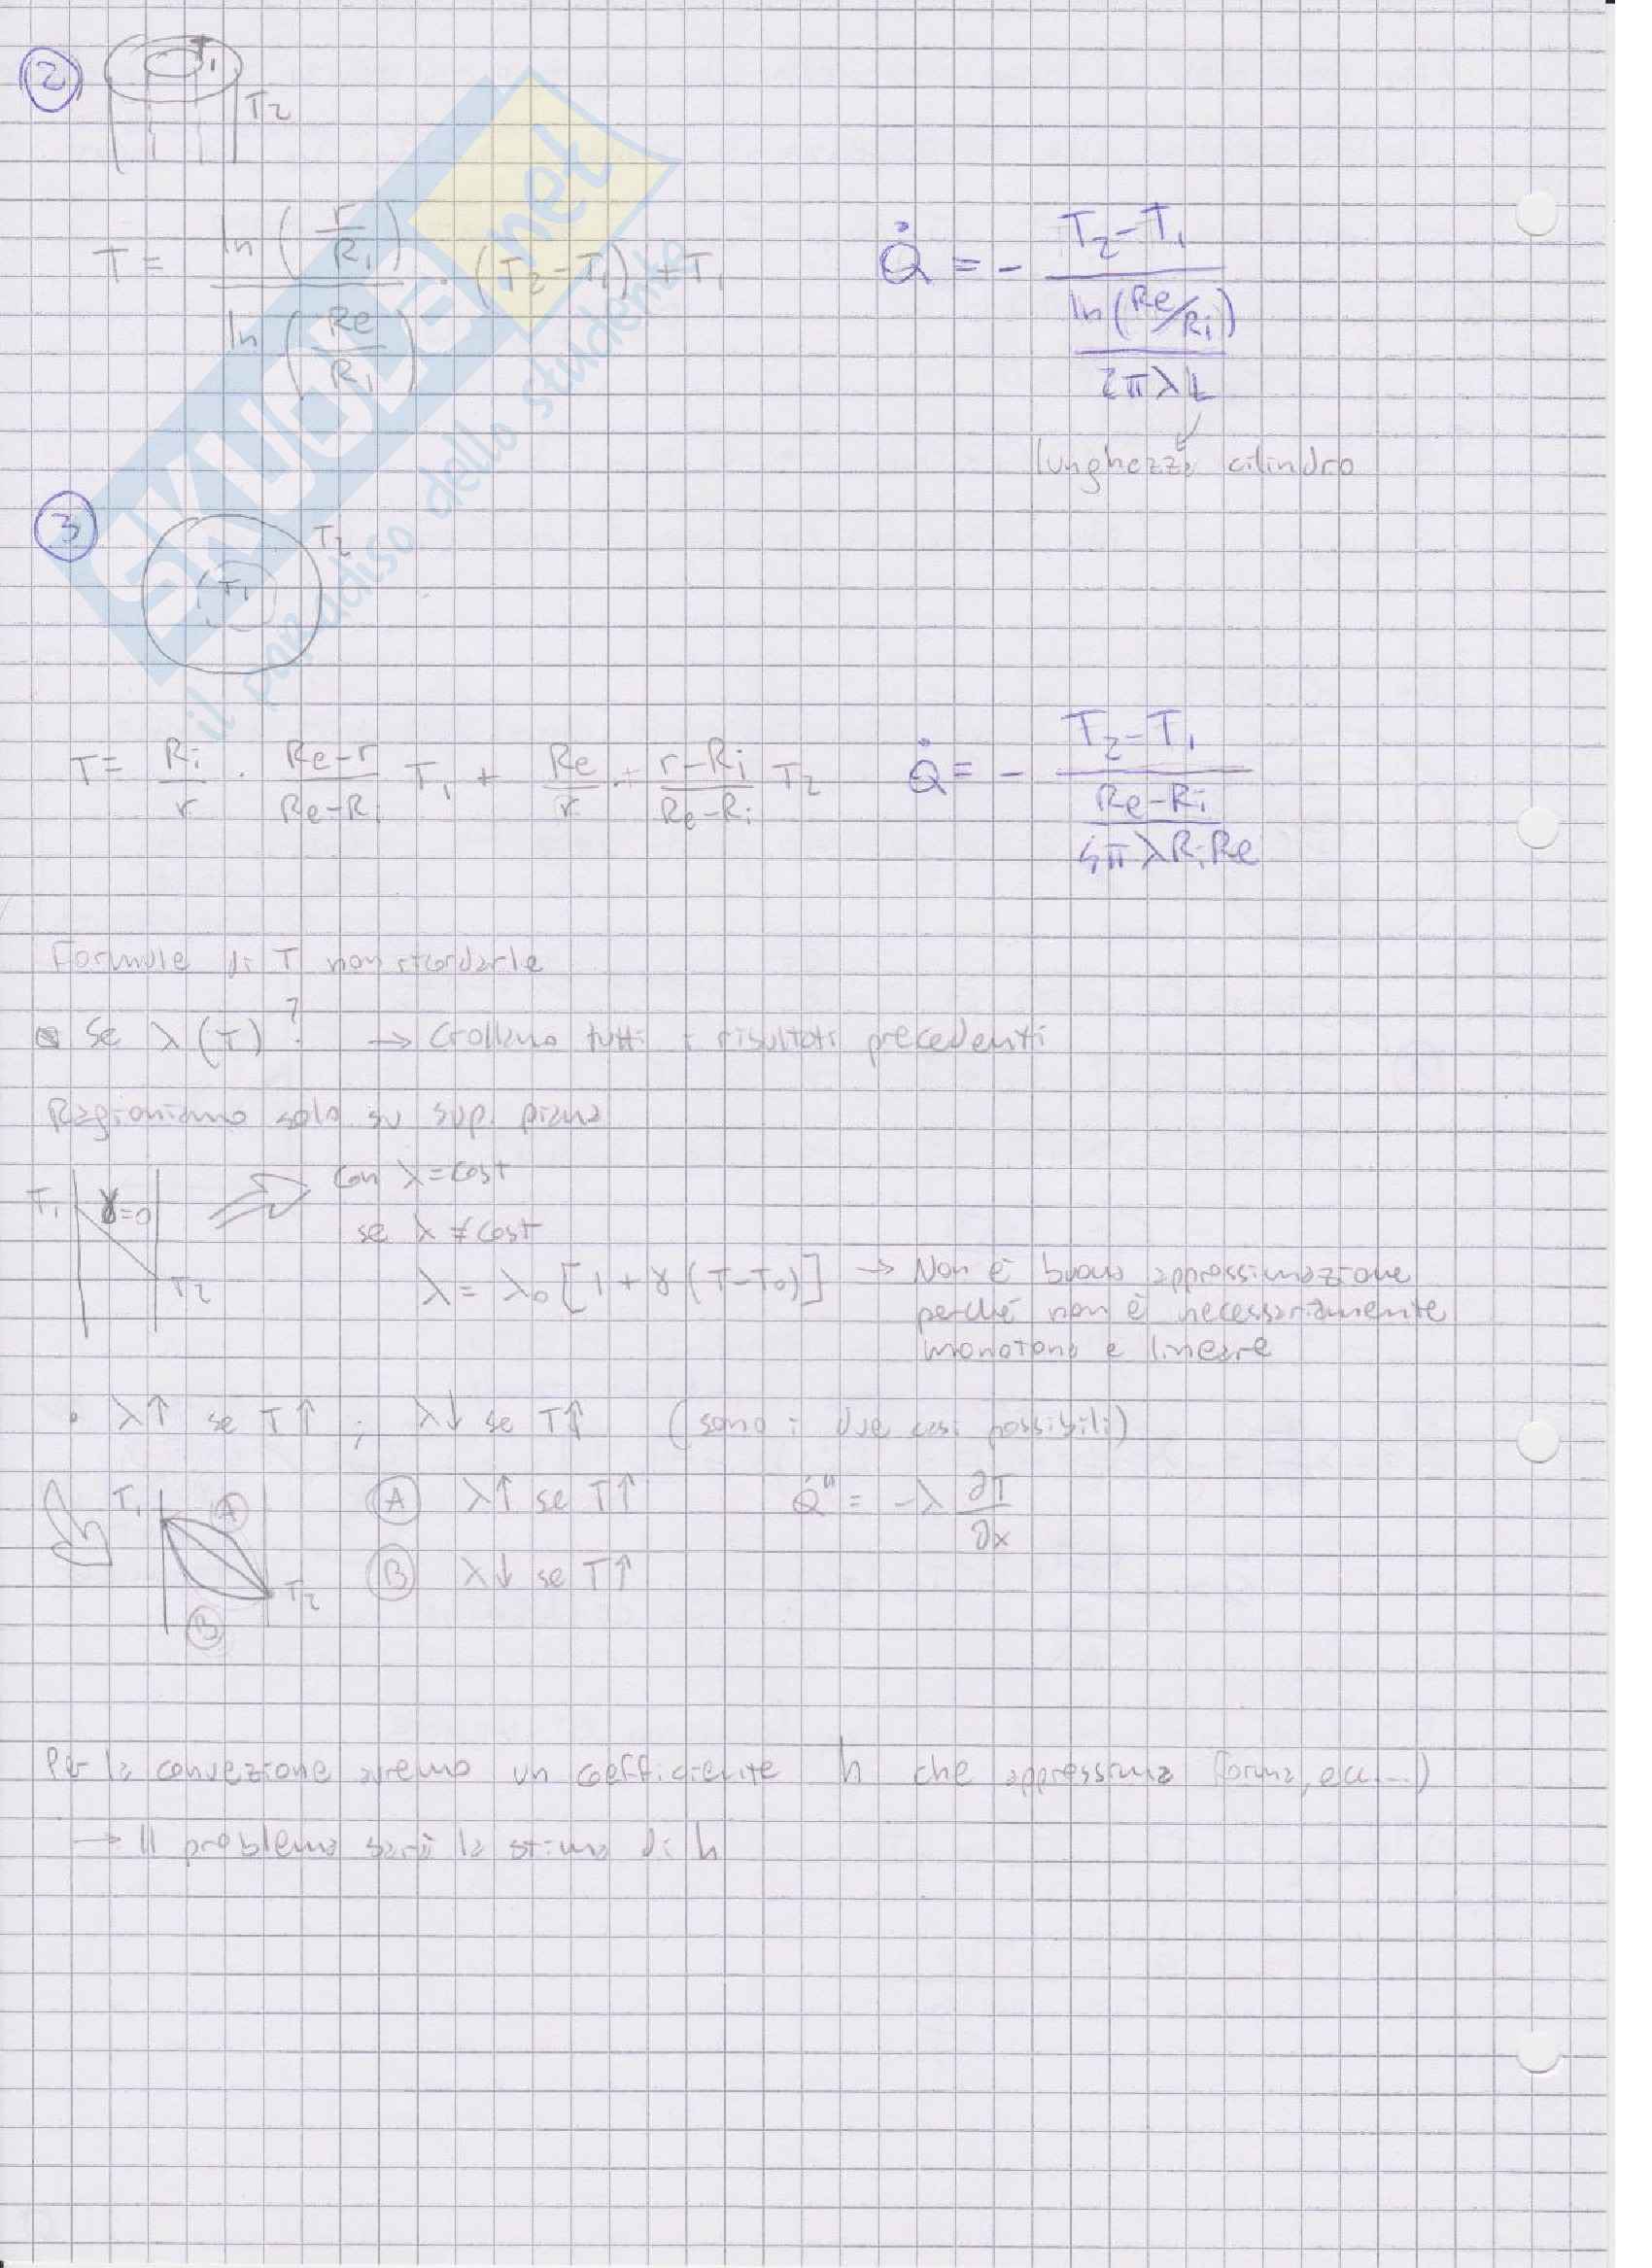 2
T1
T2
T = ln(r/Ri)/ln(Re/Ri) · (T2-T1) + T1
Q̇ = - (T2-T1)/(ln(Re/Ri)/(2πλL))
lunghezza cilindro
SKUOLA.net
il paradiso dello studente
3
T2
T1
T = Ri/r · (Re-r)/(Re-Ri) T1 + Re/r · (r-Ri)/(Re-Ri) T2
Q̇ = - (T2-T1)/((Re-Ri)/(4πλRiRe))
Formule di T non ricordarle
Se λ(T)? → Crollano tutti i risultati precedenti
Ragioniamo solo su sup. piana
T1 γ=0 T2
con λ=cost
se λ≠cost
λ = λ0 [1+γ(T-T0)] → Non è buona approssimazione
perché non è necessariamente
monotona e lineare
• λ↑ se T↑ ; λ↓ se T↑ (sono i due casi possibili)
T1 A T2 B
A λ↑ se T↑ Q̇" = -λ ∂T/∂x
B λ↓ se T↑
Per la convezione avremo un coefficiente h che approssima forma, ecc...)
→ Il problema sarà la stima di h